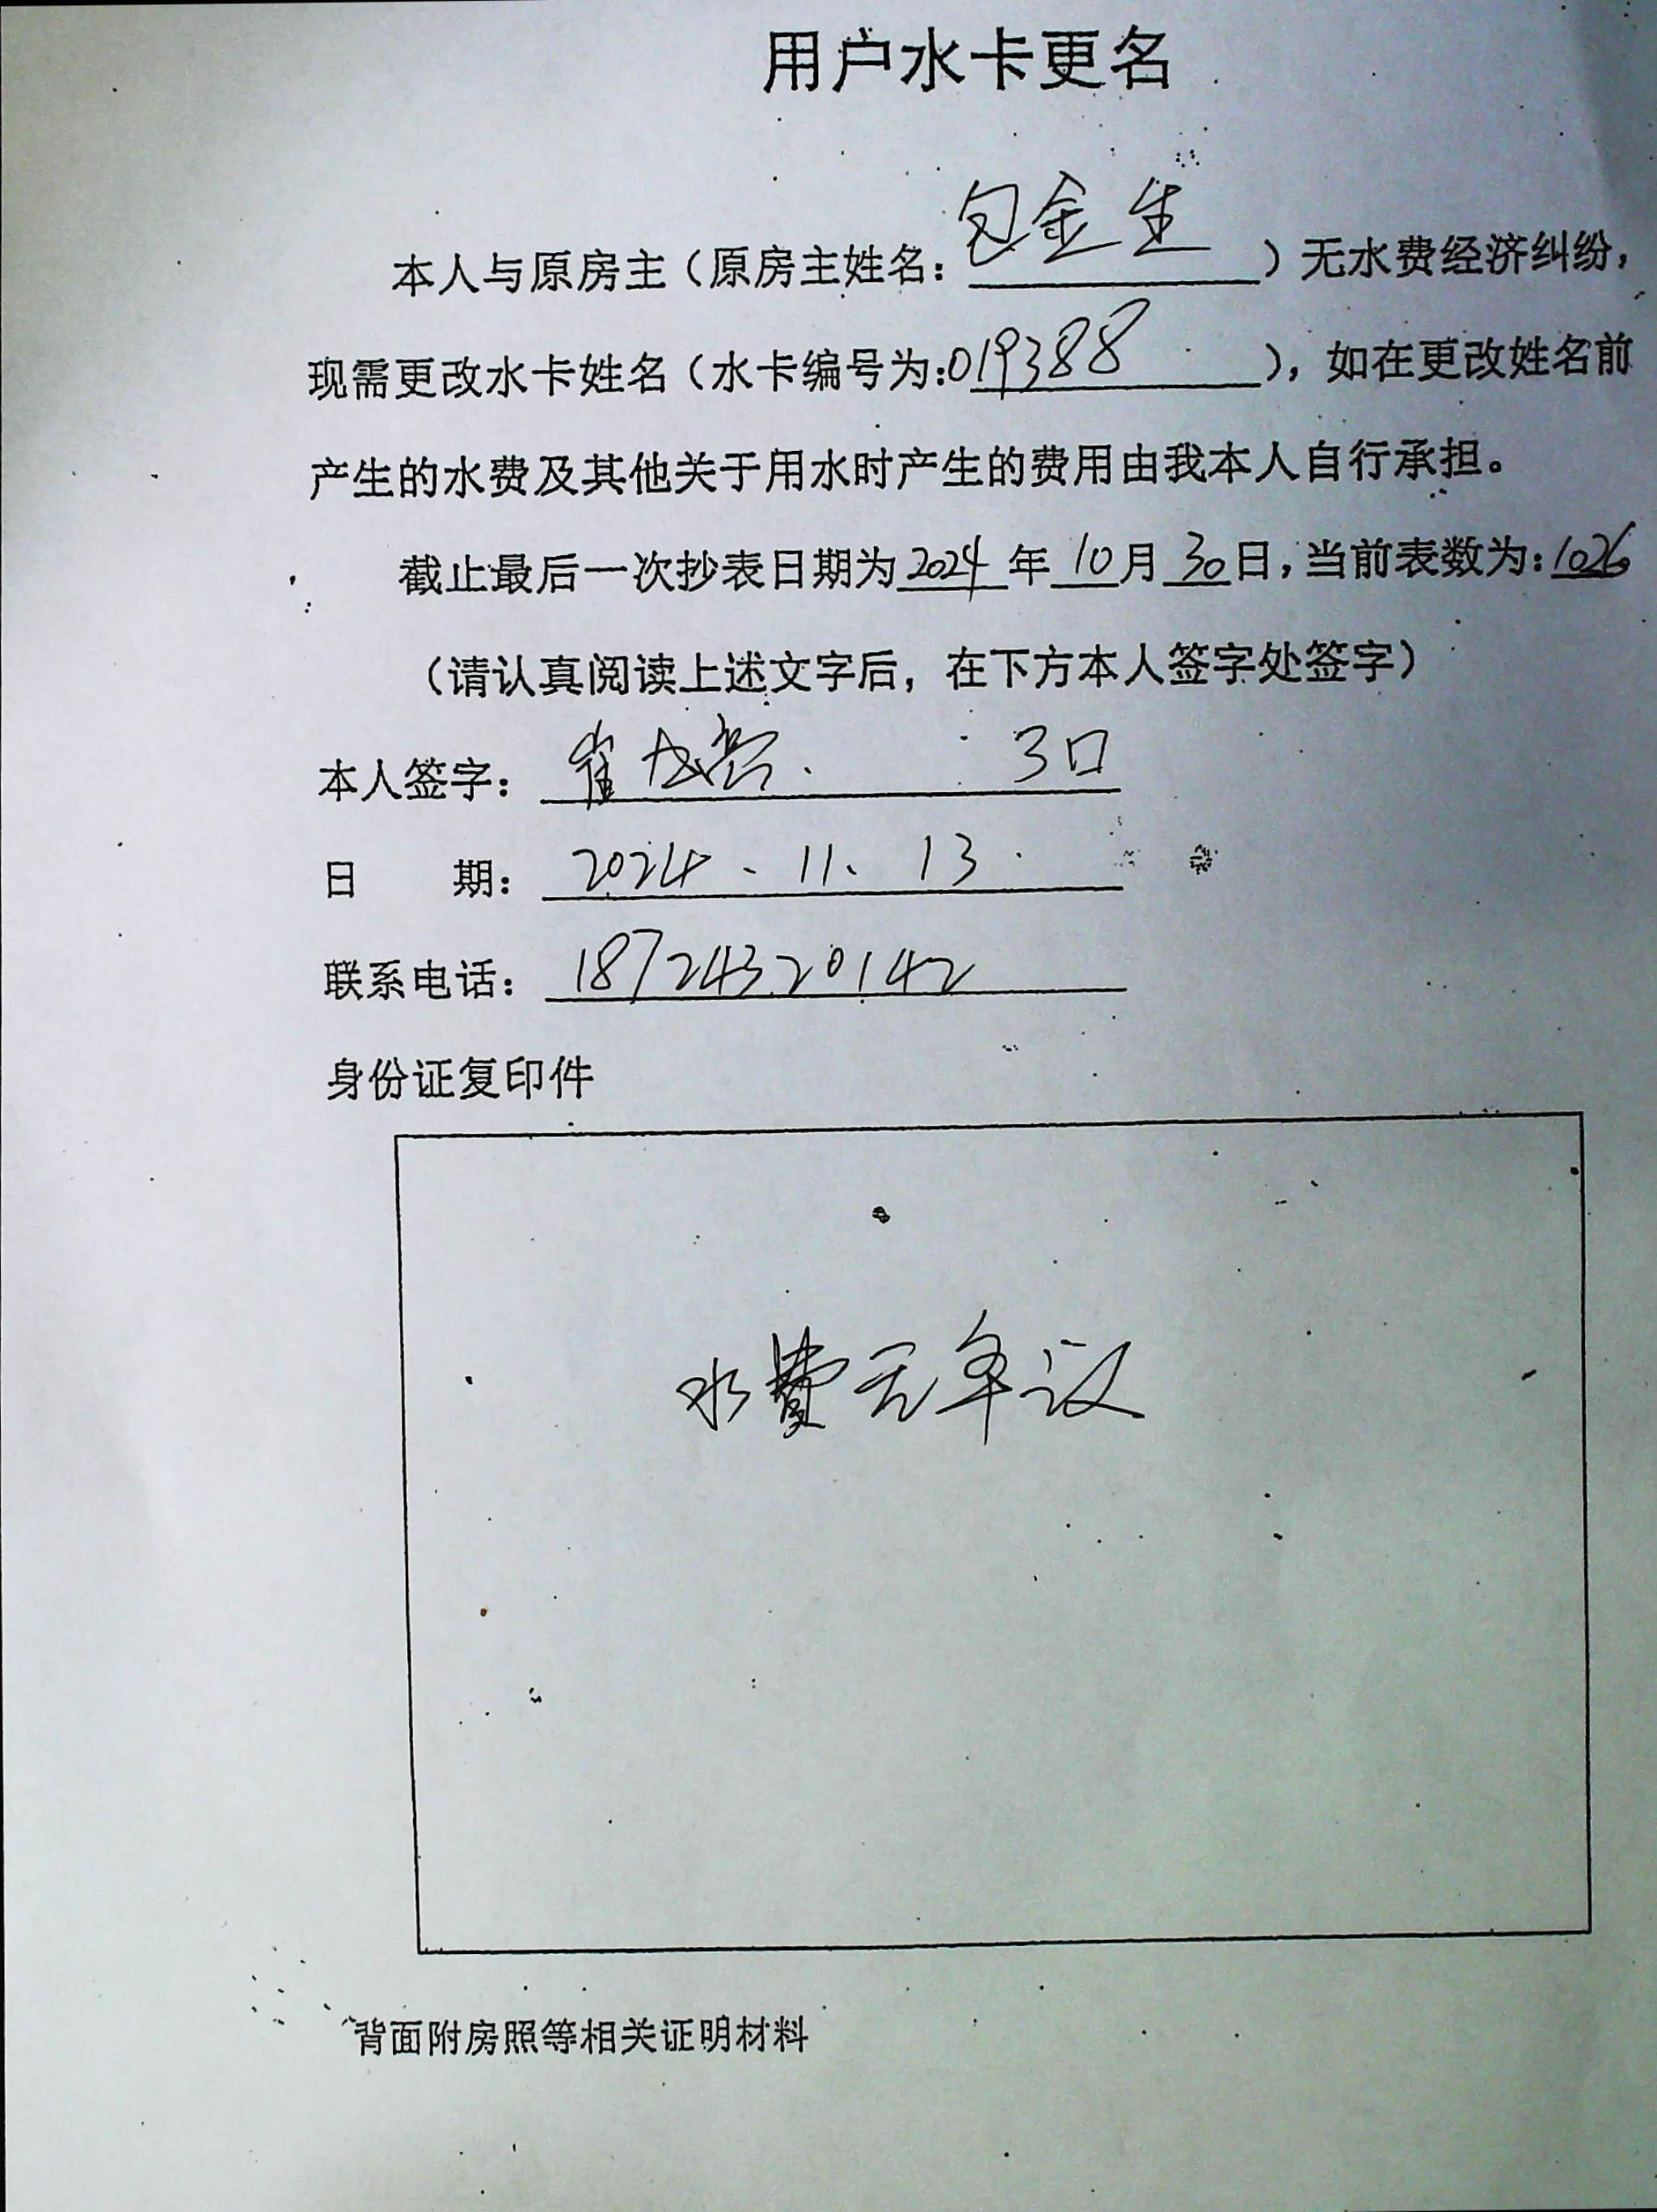 用户水卡更名
本人与原房主（原房主姓名：包金生）无水费经济纠纷，
现需更改水卡姓名（水卡编号为：019388），如在更改姓名前
产生的水费及其他关于用水时产生的费用由我本人自行承担。
截止最后一次抄表日期为2024年10月30日，当前表数为：1026
（请认真阅读上述文字后，在下方本人签字处签字）
本人签字：崔 3口
日 期：2024、11、13
联系电话：18724320142
身份证复印件
水费无争议
背面附房照等相关证明材料